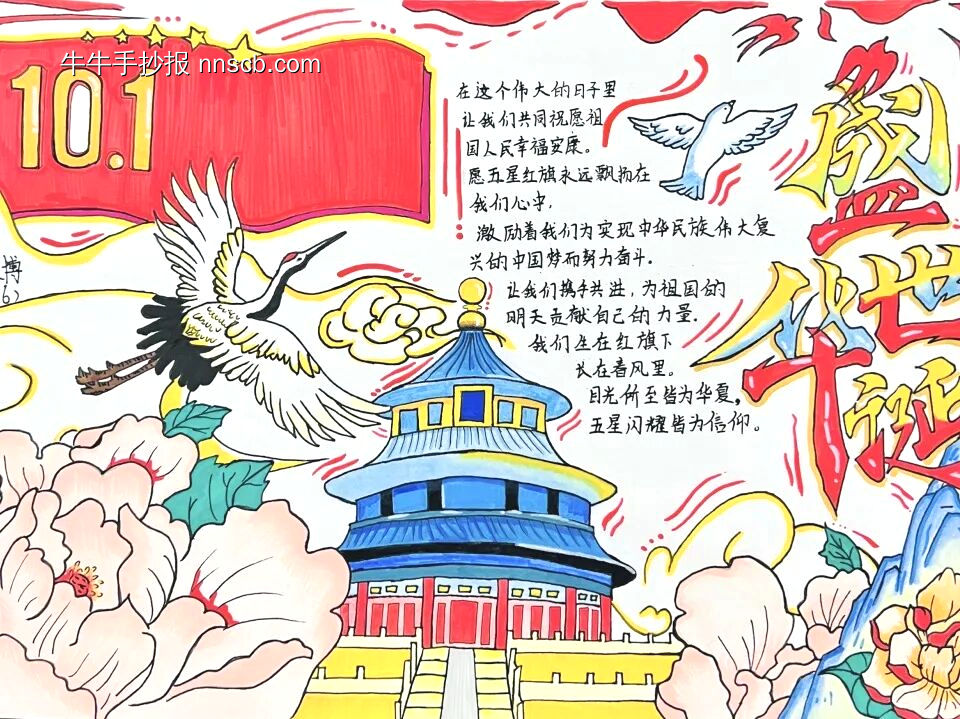 牛牛手抄报 nnscb.com
10.1
在这个伟大的日子里
让我们共同祝愿祖
国人民幸福安康。
愿五星红旗永远飘扬在
我们心中,
激励着我们为实现中华民族伟大复
兴的中国梦而努力奋斗.
让我们携手共进,为祖国的
明天贡献自己的力量.
我们生在红旗下
长在春风里。
目光所至皆为华夏,
五星闪耀皆为信仰。
盛世
华诞
博